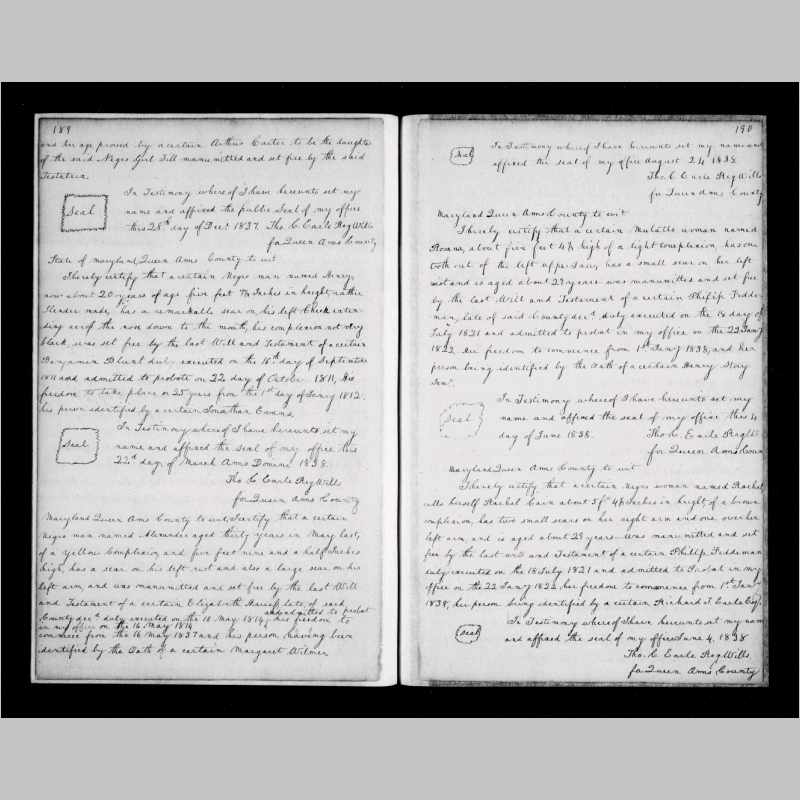 189
and her age proved by a certain Arthur Carter to be the daughter
of the said Negro Girl Till manumitted and set free by the said
Testatrix.
Seal
In Testimony where of I have hereunto set my
name and affixed the public Seal of my office
this 28th day of Decr. 1837. Tho. C Earle Reg Wills
for Queen Anns County
State of Maryland Queen Anns County to wit
I hereby certify that a certain Negro man named Henry,
now about 20 years of age five feet Inches in height, rather
slender made, has a remarkable scar on his left Cheek exten-
ding of the nose down to the mouth, his complexion not very
black, was set free by the last Will and Testament of a certain
Benjamin Blunt duly executed on the 18th day of September
1811 and admitted to probate on 22 day of October 1811, His
freedom to take place 25 years from the 1st day of Janry 1812.
his person identified by a certain Jonathan Evans
Seal
In Testimony where of I have hereunto set my
name and affixed the seal of my office this
22d day of March Anno Domini 1838.
Tho C Earle Reg Wills
for Queen Anns County
Maryland Queen Anns County to wit, I certify that a certain
Negro man named Alexander aged thirty years in May last,
of a Yellow Complexion and five feet nine and a half Inches
high, has a scar on his left and also a large scar on his
left arm, and was manumitted and set free by the last Will
and Testament of a certain Elizabeth late of said
County decd. duly executed on the 10 May 1814, and admitted to probat
in my office on the 16 May 1814 his freedom to
commence from the 16 May 1837 and his person having been
identified by the Oath of a certain Margaret Wilmer
190
Seal
In Testimony where of I have hereunto set my name and
affixed the seal of my office August 24 1838
Tho. C Earle Reg Wills
for Queen Anns County
Maryland Queen Anns County to wit
I hereby certify that a certain Mulatto woman named
Rosana, about five feet 4½ high of a light complexion, has one
tooth out of the left upper Jaw, has a small scar on her left
wrist and is aged about 27 years was manumitted and set free
by the last Will and Testament of a certain Philip Fidde-
man, late of said County decd. duly executed on the 18 day of
July 1821 and admitted to probat in my office on the 22 Janry
1822. her freedom to commence from 1st Janry 1838, and her
person being identified by the Oath of a certain Henry
Senr.
Seal
In Testimony where of I have hereunto set my
name and affixed the seal of my office this 4
day of June 1838. Tho C. Earle Reg Wills
for Queen Anns Coun
Maryland Queen Anns County to wit
I hereby certify that a certain Negro woman named Rachel
calls herself Rachel Cain about 5 ft 4½ Inches in height, of a brown
complexion, has two small scars on her right arm and one over her
left arm, and is aged about 23 years was manumitted and set
free by the last will and Testament of a certain Phillip Fiddeman
duly executed on the 18 July 1821 and admitted to Probat in my
office on the 22 Janry 1822. her freedom to commence from 1st Janry
1838, her person being identified by a certain Richard T. Earle Esqr.
Seal
In Testimony where of I have hereunto set my nam
and affixed the seal of my office June 4. 1838
Tho. C Earle Reg Wills
for Queen Anns County